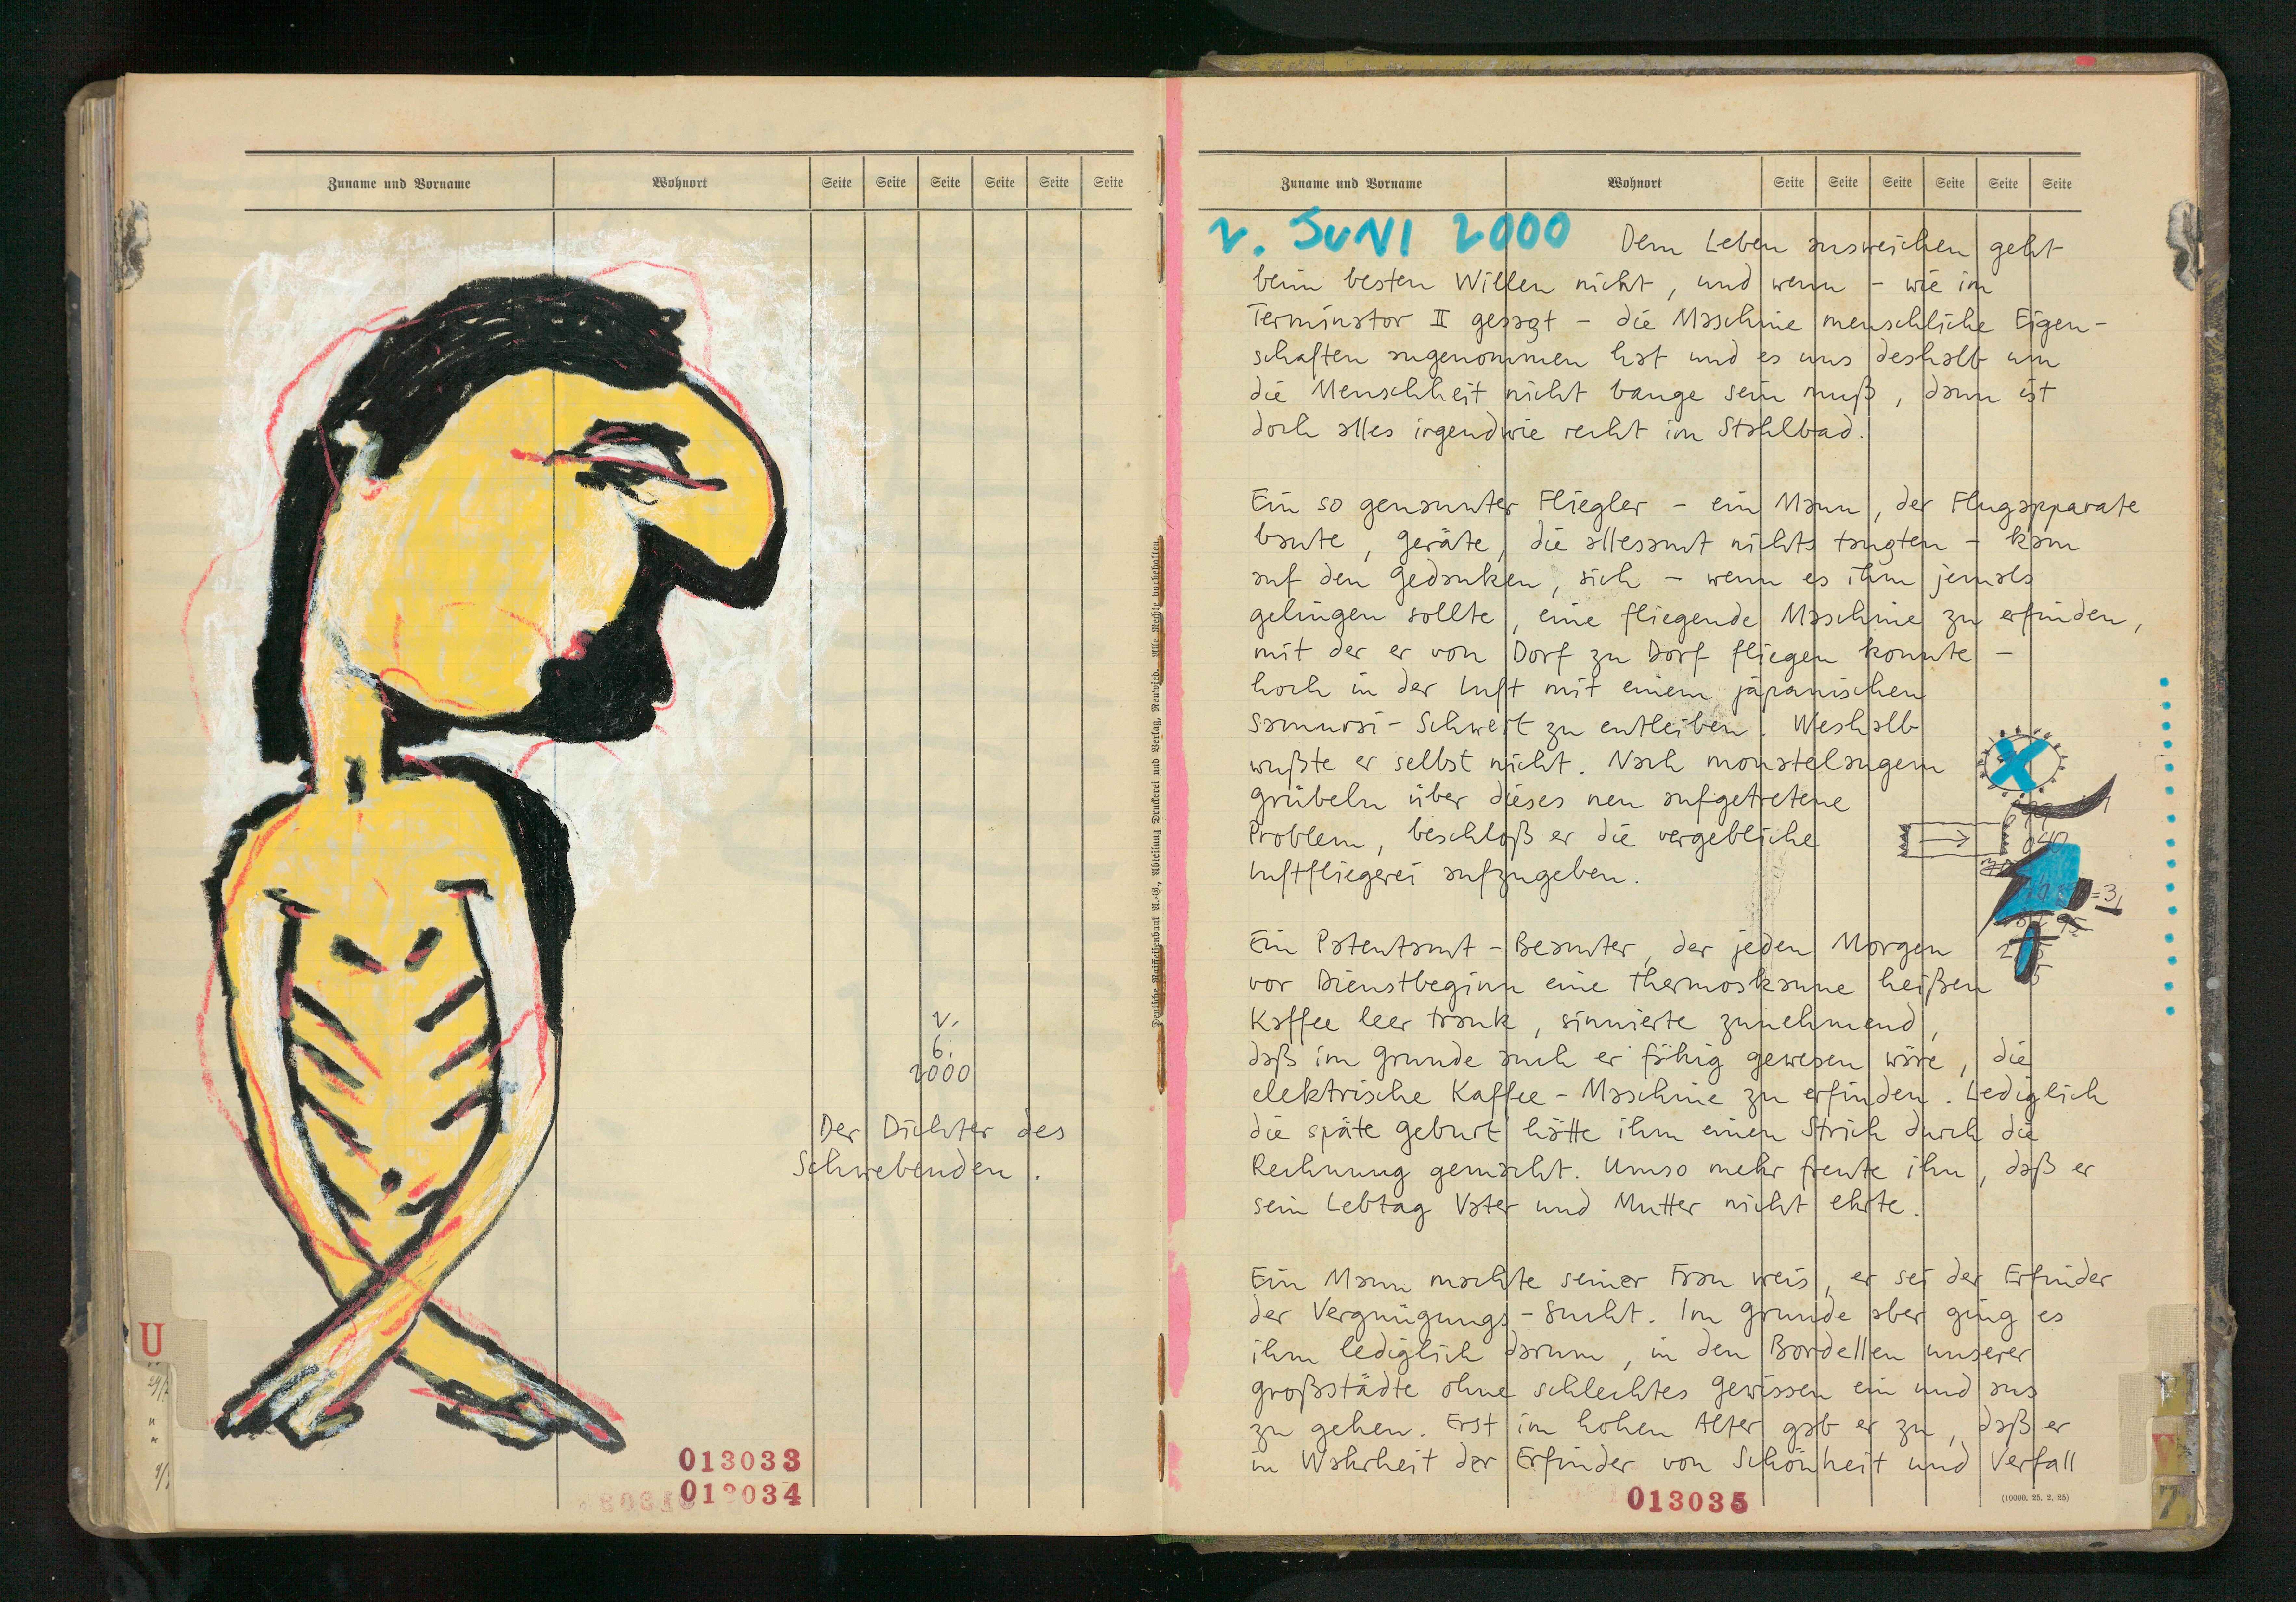 Zuname und Vorname Wohnort Seite Seite Seite Seite Seite Seite
2.
6.
2000
Der Dichter des
Schwebenden.
U
013033
013034
Deutsche Raiffeisenbank A.-G., Abteilung Druckerei und Verlag, Neuwied. Alle Rechte vorbehalten.
Zuname und Vorname Wohnort Seite Seite Seite Seite Seite Seite
2. JUNI 2000 Dem Leben ausweichen geht
beim besten Willen nicht, und wenn – wie im
Terminator II gesagt – die Maschine menschliche Eigen-
schaften angenommen hat und es uns deshalb um
die Menschheit nicht bange sein muß, dann ist
doch alles irgendwie recht im Stahlbad.
Ein so genannter Fliegler – ein Mann, der Flugapparate
baute, Geräte, die allesamt nichts taugten – kam
auf den Gedanken, sich – wenn es ihm jemals
gelingen sollte, eine fliegende Maschine zu erfinden,
mit der er von Dorf zu Dorf fliegen konnte –
hoch in der Luft mit einem japanischen
Samurai-Schwert zu entleiben. Weshalb
wußte er selbst nicht. Nach monatelangem
Grübeln über dieses neu aufgetretene
Problem, beschloß er die vergebliche
Luftfliegerei aufzugeben.
Ein Patentamt-Beamter, der jeden Morgen
vor Dienstbeginn eine Thermoskanne heißen
Kaffee leer trank, sinnierte zunehmend,
daß im Grunde auch er fähig gewesen wäre, die
elektrische Kaffee-Maschine zu erfinden. Lediglich
die späte Geburt hätte ihm einen Strich durch die
Rechnung gemacht. Umso mehr freute ihn, daß er
sein Lebtag Vater und Mutter nicht ehrte.
Ein Mann machte seiner Frau weis, er sei der Erfinder
der Vergnügungs-Sucht. Im Grunde aber ging es
ihm lediglich darum, in den Bordellen unserer
Großstädte ohne schlechtes Gewissen ein und aus
zu gehen. Erst im hohen Alter gab er zu, daß er
in Wahrheit der Erfinder von Schönheit und Verfall
013035
(10000. 25. 2. 25)
V
7